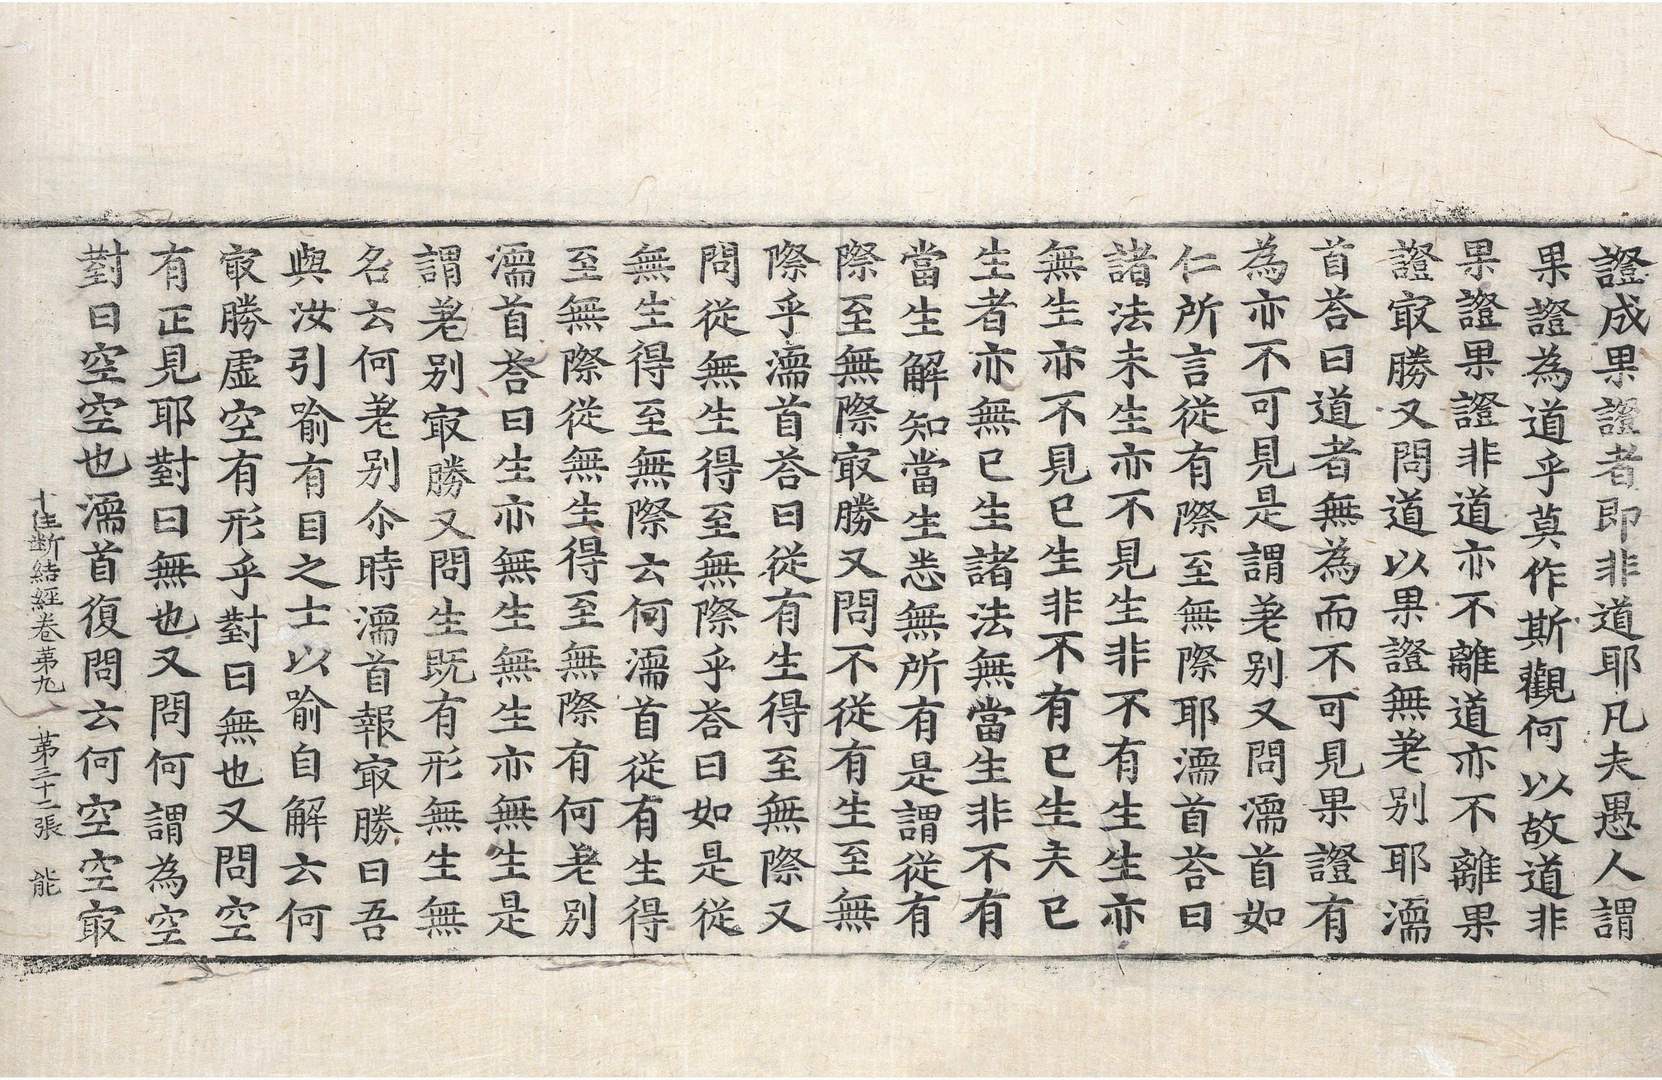 證成果證者即非道耶凡夫愚人謂
果證為道乎莫作斯觀何以故道非
果證果證非道亦不離道亦不離果
證㝡勝又問道以果證無㳟别耶濡
首荅曰道者無為而不可見果證有
為亦不可見是謂㳟别又問濡首如
仁所言從有際至無際耶濡首荅曰
諸法未生亦不見生非不有生生亦
無生亦不見已生非不有已生夫已
生者亦無已生諸法無當生非不有
當生解知當生悉無所有是謂從有
際至無際㝡勝又問不從有生至無
際乎濡首荅曰從有生得至無際又
問從無生得至無際乎荅曰如是從
無生得至無際云何濡首從有生得
至無際從無生得至無際有何㳟别
濡首荅曰生亦無生無生亦無生是
謂㳟别㝡勝又問生既有形無生無
名云何㳟别尒時濡首報㝡勝曰吾
與汝引喻有目之士以喻自解云何
㝡勝虛空有形乎對曰無也又問空
有正見耶對曰無也又問何謂為空
對曰空空也濡首復問云何空空㝡
十住断結經卷第九　第三十二張　能